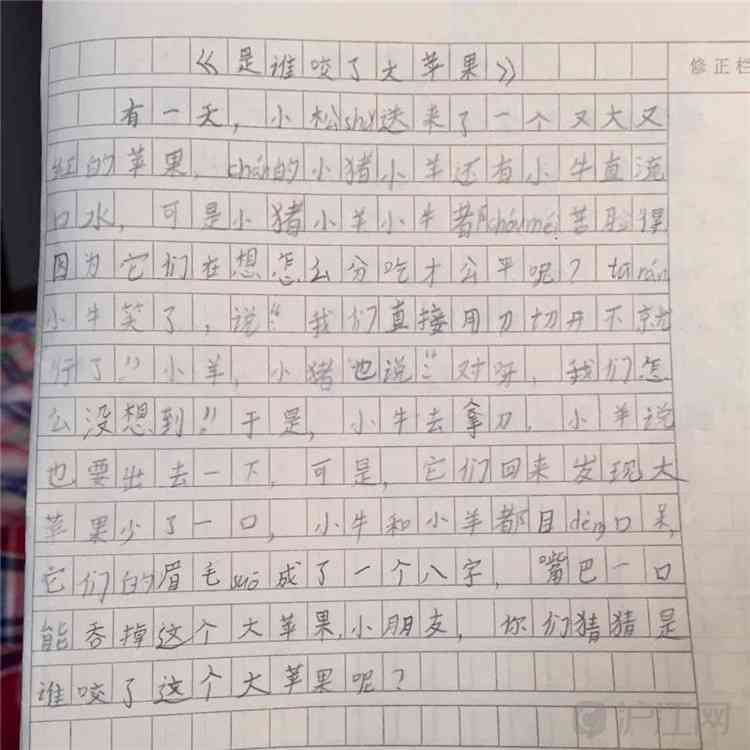 《是谁咬了大苹果》
修正栏
有一天，小松shǔ送来了一个又大又
红的苹果，chán的小猪小羊还有小牛直流
口水，可是小猪小羊小牛都chóuméi苦脸得
因为它们在想怎么分吃才公平呢？tūrán
小牛笑了，说：“我们直接用刀切开不就
行了！”小羊，小猪也说：“对呀，我们怎
么没想到！”于是，小牛去拿刀，小羊说
也要出去一下，可是，它们回来发现大
苹果少了一口，小牛和小羊都目dèng口呆，
它们的眉毛suō成了一个八字，嘴巴一口
能吞掉这个大苹果，小朋友，你们猜猜是
谁咬了这个大苹果呢？
沪江网